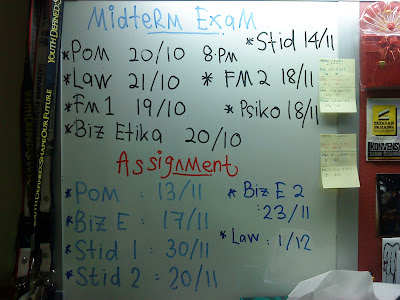 MidteRM Exam
*Stid 14/11
*POM 20/10 8.PM
*Law 21/10 * FM 2 18/11
*FM 1 19/10 *Psiko 18/11
*Biz Etika 20/10
Assignment
*POM : 13/11 *Biz E 2
: 23/11
*Biz E : 17/11
*Stid 1 : 30/11 *Law : 1/12
*Stid 2 : 20/11
YOUTH DEFINED.SHAPE OUR FUTURE.
YOUTH DEFINED
KONVENSYEN